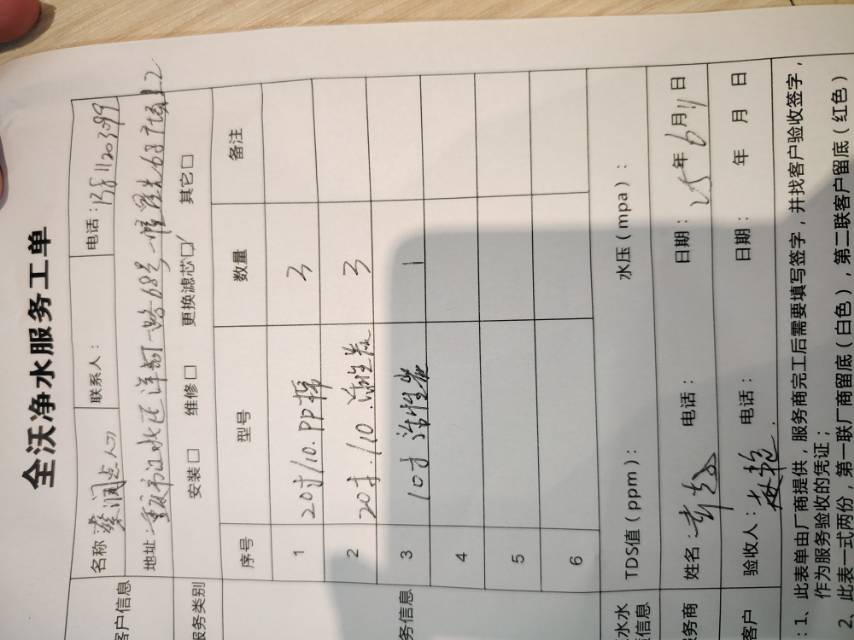 全沃净水服务工单
客户信息 名称 联系人： 电话：15811203099
地址：重庆市江北区洋河一路68号
服务类别 安装□ 维修□ 更换滤芯☑ 其它□
务信息 序号 型号 数量 备注
1 20寸/10.PP棉 3
2 20寸./10.活性炭 3
3 10寸活性炭 1
4
5
6
水水信息 TDS值（ppm）： 水压（mpa）：
务商 姓名： 电话： 日期： 25年6月11日
客户 验收人： 电话： 日期： 年 月 日
：1、此表单由厂商提供，服务商完工后需要填写签字，并找客户验收签字，
作为服务验收的凭证；
2、此表一式两份，第一联厂商留底（白色），第二联客户留底（红色）